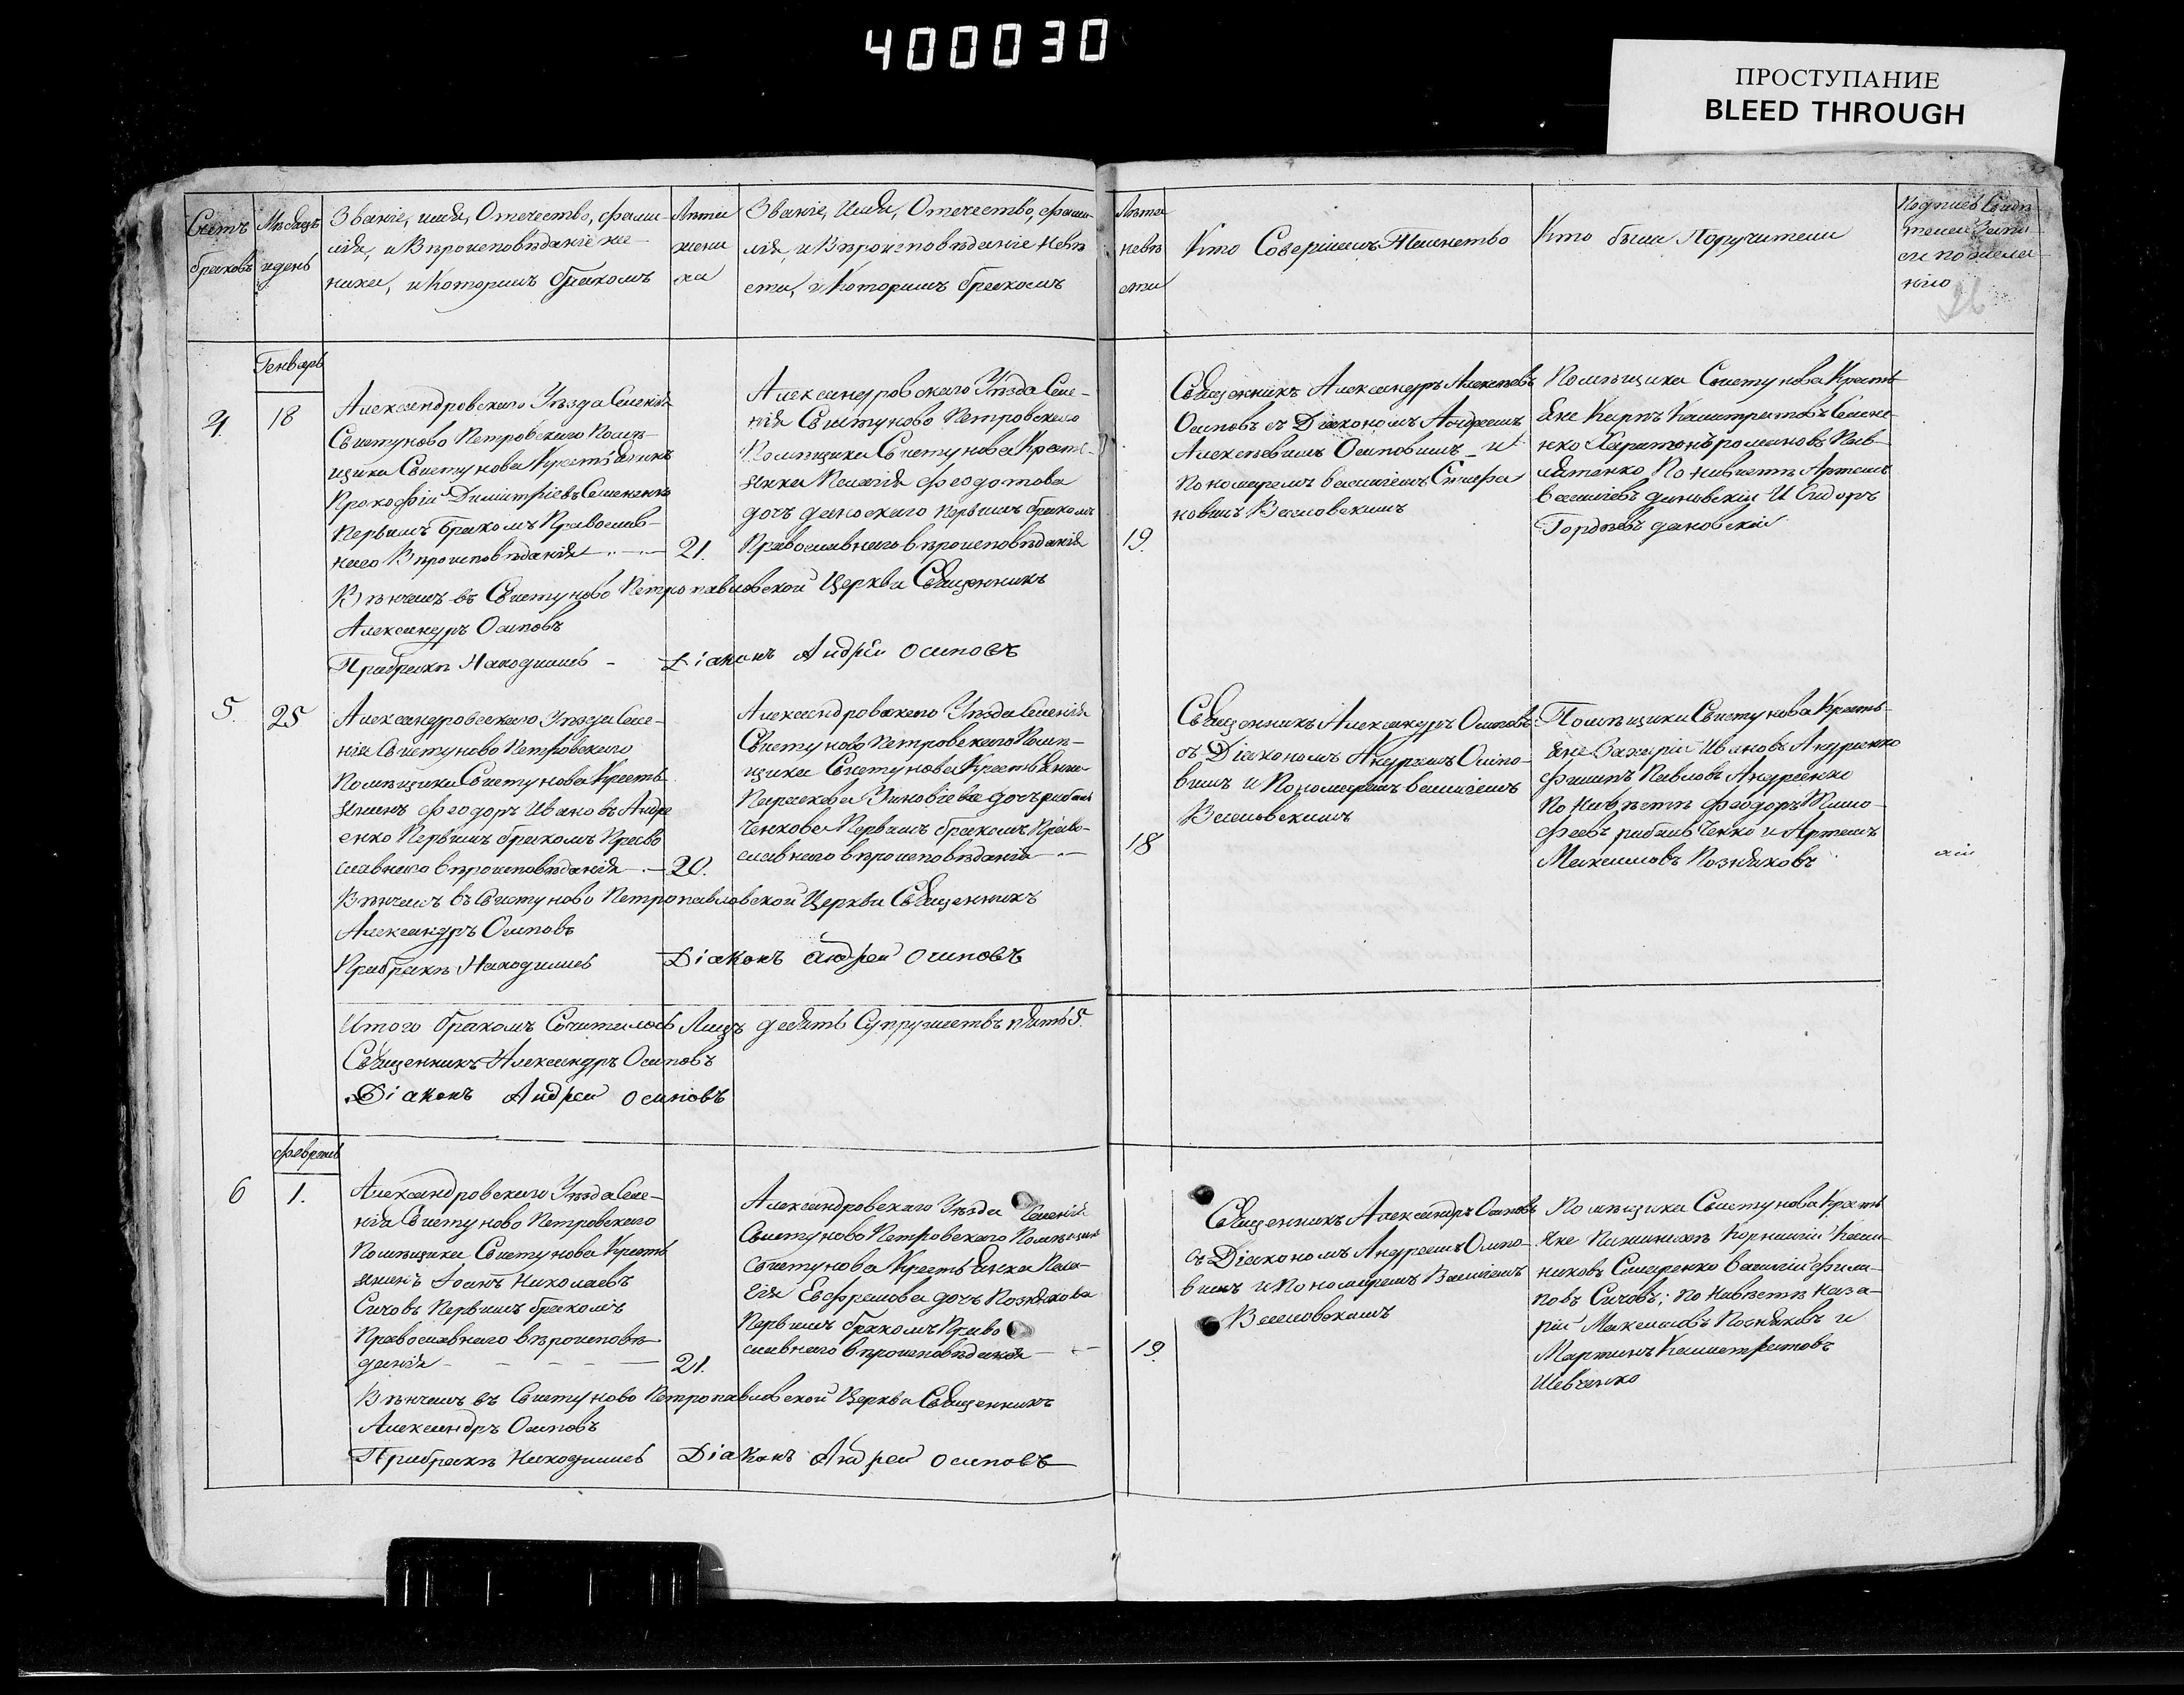 400030
ПРОСТУПАНИЕ
BLEED THROUGH
Счетъ браковъ
Мѣсяцъ и день
Званіе, имя, Отечество, фами-
лія, и Вѣроисповѣданіе же-
ниха, и Которымъ бракомъ
Лѣта
жени
ха
Званіе, Имя, Отечество, фами-
лія, и Вѣроисповѣданіе Невѣ
сти, и Которымъ бракомъ
Лѣта
невѣ
сти
Кто Совершалъ Таинство
Кто были Поручители
Подписъ Свидѣ
телей Запи
си по жела
нію
26
Генварь
4
18
Александровскаго Уѣзда Селенія
Свистуново Петровскаго Помѣ-
щика Свистунова Крестьянинъ
Прокофій Димитріевъ Семененко
Первымъ бракомъ Православ-
наго Вѣроисповѣданія
21.
Александровскаго Уѣзда Селе-
нія Свистуново Петровскаго
Помѣщика Свистунова Кресть-
янка Пелагія Феодотова
дочъ Первымъ бракомъ
Православнаго вѣроисповѣданія
19.
Священникъ Александръ Алексѣевъ
Осиповъ съ Діакономъ Андреемъ
Алексѣевымъ Осиповымъ и
Пономаремъ Василіемъ Стефа
новымъ Веселовскимъ
Помѣщика Свистунова Кресть-
яне Карпъ Калистратовъ Семене-
нко Харитонъ романовъ Пав-
лятенко По Невѣстѣ Артемъ
Василіевъ дановскій И Сидоръ
Гордѣевъ дановскій
Вѣнчалъ въ Свистуново Петропавловской Церкви Священникъ
Александръ Осиповъ
При бракѣ Находились - Діаконъ Андрей Осиповъ
5.
25
Александровскаго Уѣзда Селе-
нія Свистуново Петровскаго
Помѣщика Свистунова Кресть
янинъ Феодоръ Ивановъ Андре
енко Первымъ бракомъ Право
славнаго вѣроисповѣданія
20.
Александровскаго Уѣзда Селенія
Свистуново Петровскаго Помѣ-
щика Свистунова Крестьянка
Параскева Зиновіева дочъ рибал
ченкова Первымъ бракомъ Право-
славнаго вѣроисповѣданія
18
Священникъ Александръ Осиповъ
съ Діакономъ Андреемъ Осипо-
вымъ и Пономаремъ Василіемъ
Веселовскимъ
Помѣщика Свистунова Кресть-
яне Захарій Ивановъ Андреенко
Филипъ Павловъ Андреенко
По Невѣстѣ Феодоръ Тимо-
феевъ рибалъченко и Артемъ
Максимовъ Позняковъ
Вѣнчалъ въ Свистуново Петропавловской Церкви Священникъ
Александръ Осиповъ
При бракѣ Находились Діаконъ Андрей Осиповъ
Итого бракомъ Сочеталось Лицъ десять Супружествъ пять 5.
Священникъ Александръ Осиповъ
Діаконъ Андрей Осиповъ
Февраль
6
1.
Александровскаго Уѣзда Селе-
нія Свистуново Петровскаго
Помѣщика Свистунова Кресть
янинъ Іоанъ Николаевъ
Сичовъ Первымъ бракомъ
Православнаго вѣроисповѣ-
данія
21.
Александровскаго Уѣзда Селенія
Свистуново Петровскаго Помѣщика
Свистунова Крестьянка Пела-
гія Евфремова дочъ Познякова
Первымъ бракомъ Право
славнаго вѣроисповѣданія
19.
Священникъ Александръ Осиповъ
съ Діакономъ Андреемъ Осипо-
вымъ и Пономаремъ Василіемъ
Веселовскимъ
Помѣщика Свистунова Кресть
яне По женихѣ Корнилій Кали-
никовъ Слюренко Василій Фили-
повъ Сичовъ; По Невѣстѣ Наза-
рій Максимовъ Позняковъ и
Мартинъ Калистратовъ
Шевченко
Вѣнчалъ въ Свистуново Петропавловской Церкви Священникъ
Александръ Осиповъ
При бракѣ Находились Діаконъ Андрей Осиповъ